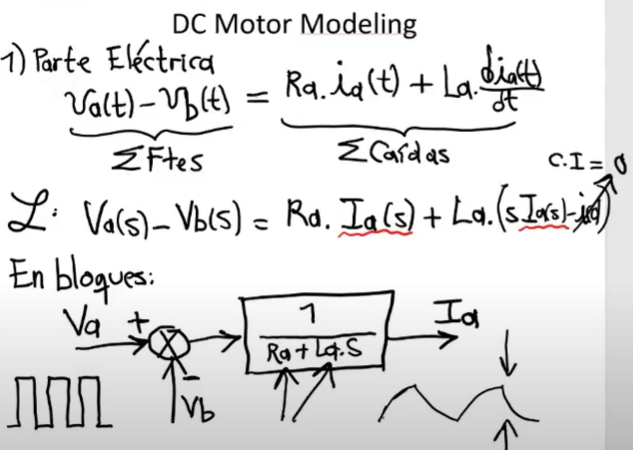 DC Motor Modeling
1) Parte Eléctrica
Va(t) - Vb(t) = Ra. ia(t) + La. dia(t)/dt
ΣFtes ΣCaídas
C.I = 0
ℒ: Va(s) - Vb(s) = Ra. Ia(s) + La. (sIa(s) - i(0))
En bloques:
Va + 1/(Ra + La.S) Ia
- Vb